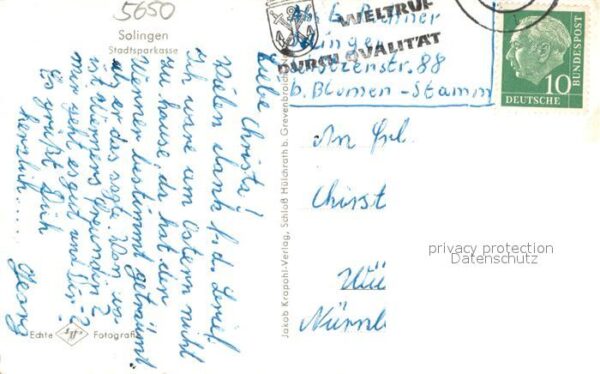 5650
Solingen
Stadtsparkasse
Liebe Christa!
Vielen Dank f. d. Brief.
Ich wäre um Ostern nicht
zu hause, da hat der
Männer bestimmt geträumt
als er das sagte. Was
ist Werners Freundin?
Mir geht es gut und Dir?
Es grüßt Dich
herzlich....
Georg
Echte
Agfa
Fotografie
Jakob Krapohl-Verlag, Schloß Hülchrath b. Grevenbroich
WELTRUF
DURCH QUALITÄT
Solingen
str. 88
b. Blumen-Stamm
DEUTSCHE
BUNDESPOST
10
An Frl.
Christ
Nürnb
privacy protection
Datenschutz